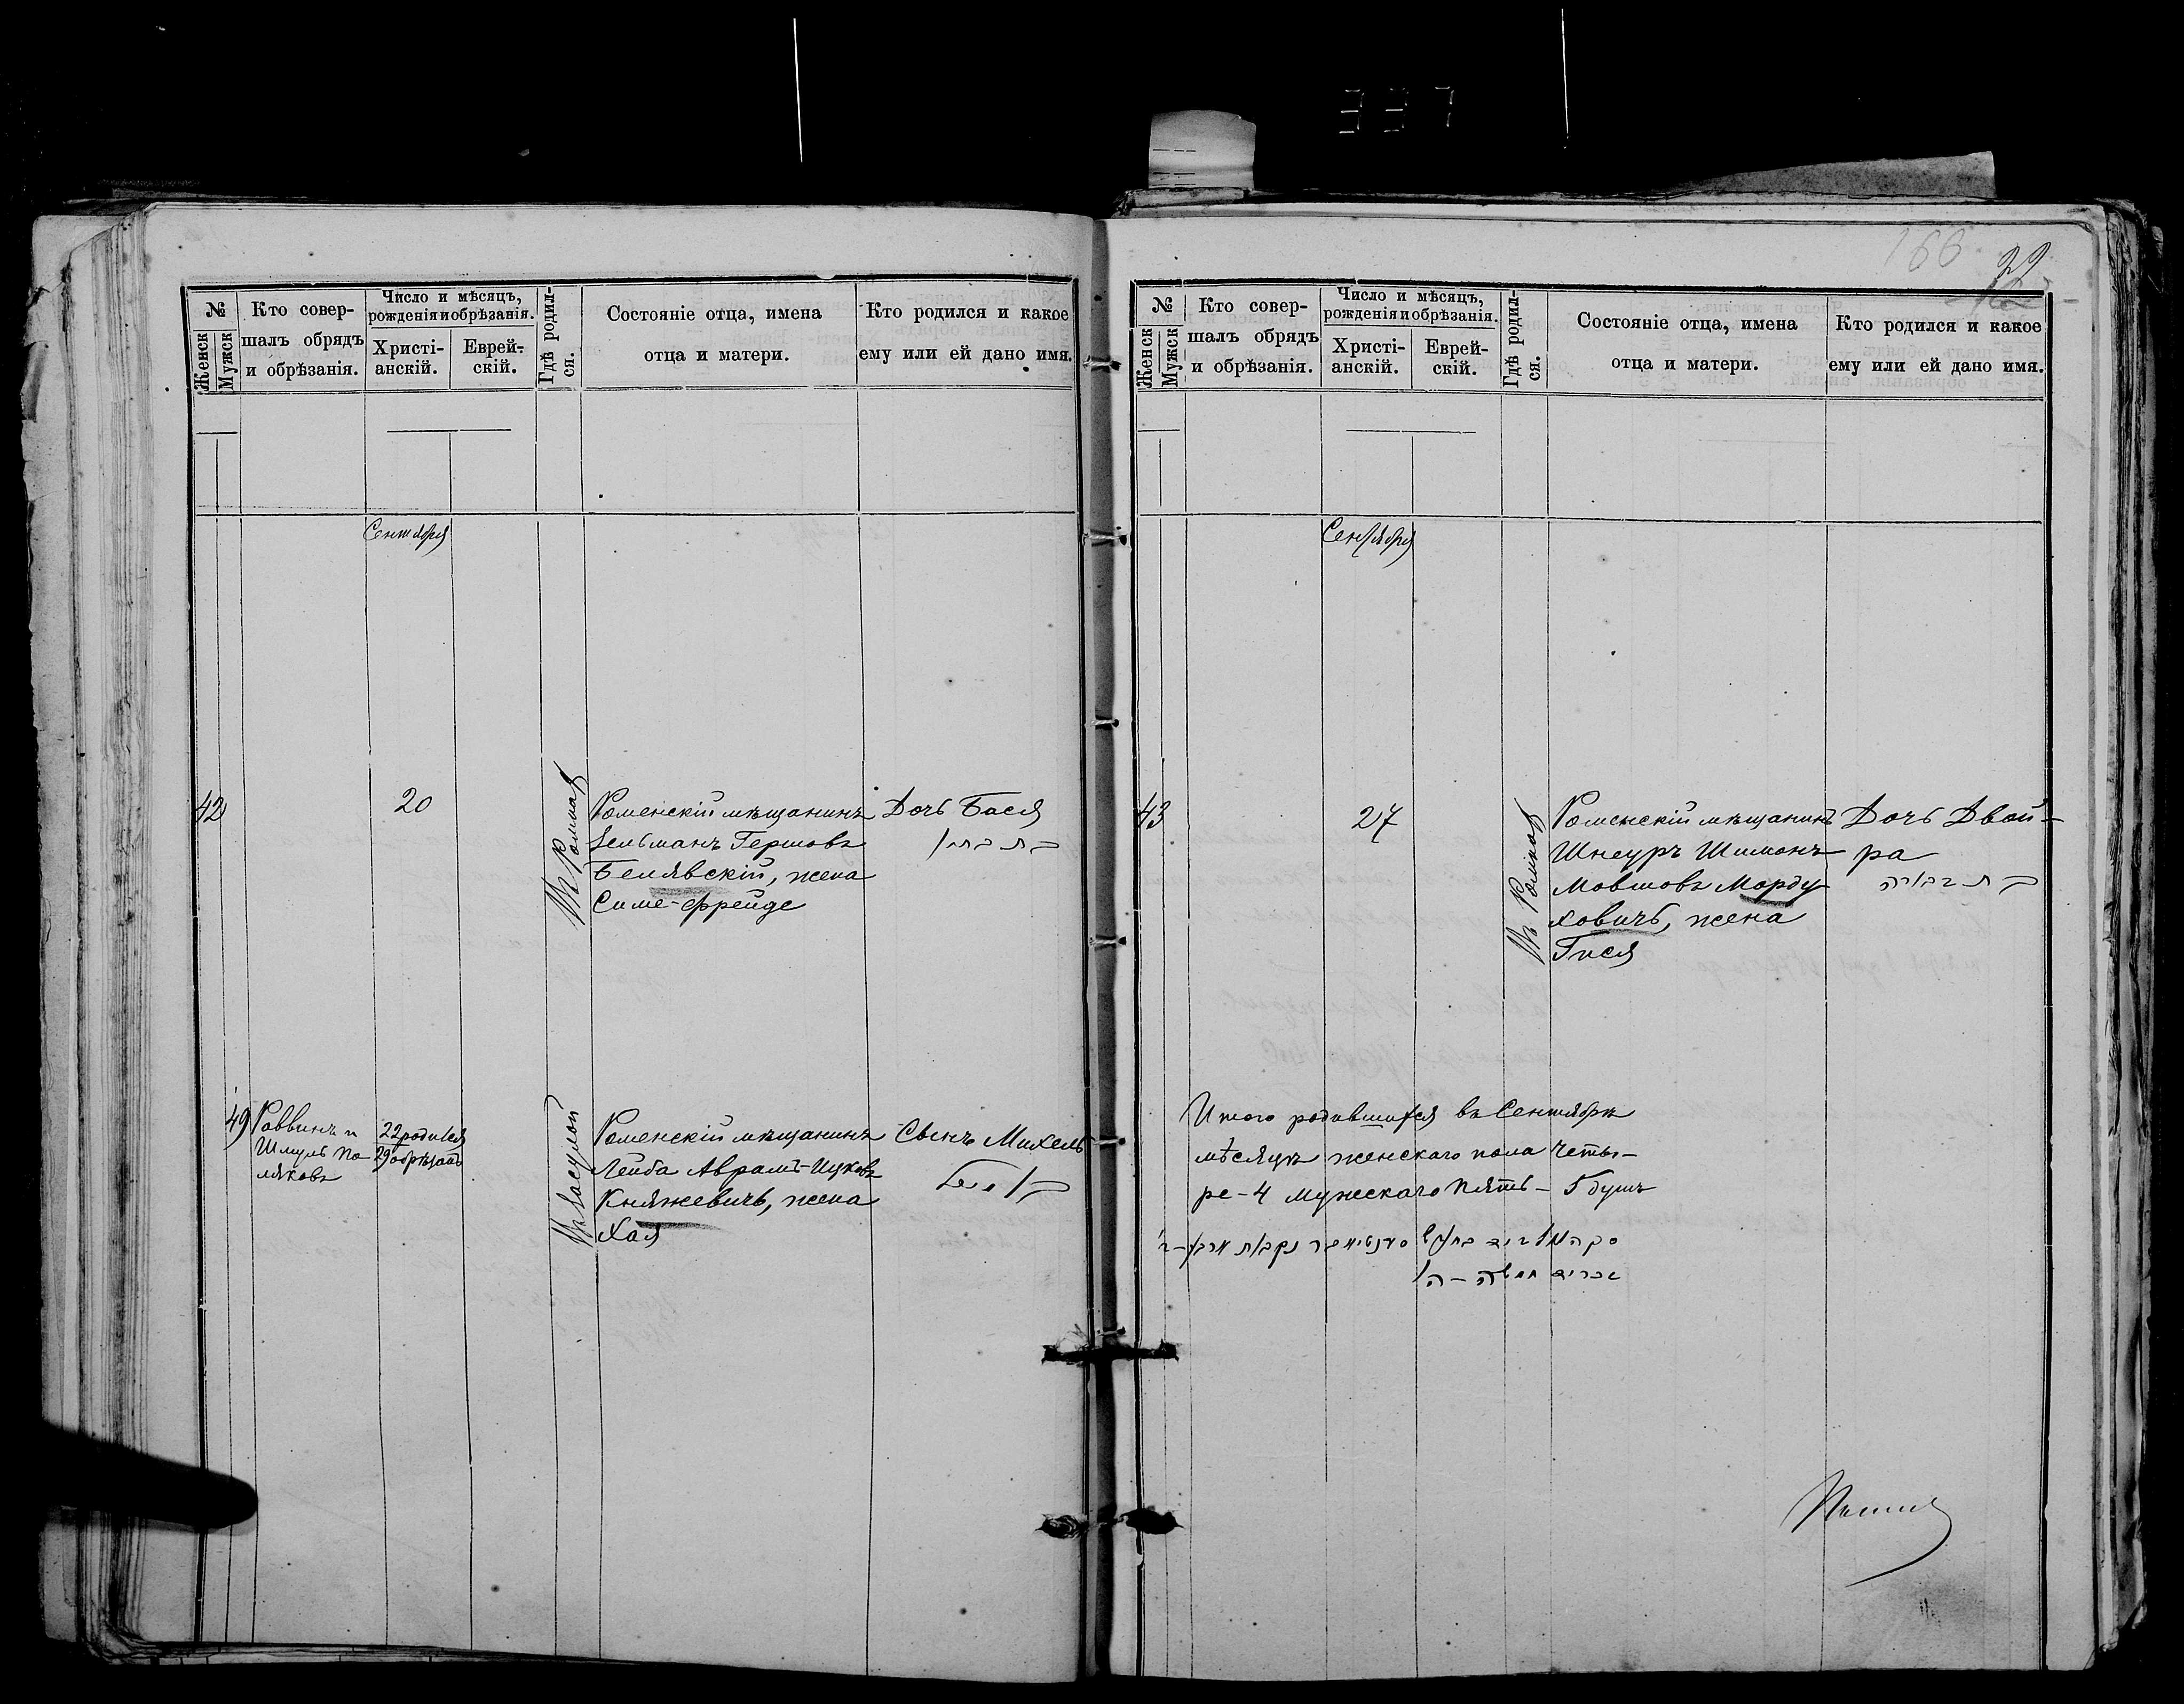 337
166
22
№
Женск
Мужск
Кто совер-
шалъ обрядъ
и обрѣзанія.
Число и мѣсяцъ,
рожденія и обрѣзанія.
Христі-
анскій.
Еврей-
скій.
Гдѣ родил-
ся.
Состояніе отца, имена
отца и матери.
Кто родился и какое
ему или ей дано имя.
Сентября
42
20
Роменскій мѣщанинъ
Зельманъ Гершовъ
Белявскій, жена
Симе-Фрейде
Дочь Бася
49
Раввинъ и
Шмуль По-
ляковъ
22 родился
29 обрѣзанъ
Роменскій мѣщанинъ
Лейба Аврамъ-Ицковъ
Княжевичъ, жена
Хая
Сынъ Михель
№
Женск
Мужск
Кто совер-
шалъ обрядъ
и обрѣзанія.
Число и мѣсяцъ,
рожденія и обрѣзанія.
Христі-
анскій.
Еврей-
скій.
Гдѣ родил-
ся.
Состояніе отца, имена
отца и матери.
Кто родился и какое
ему или ей дано имя.
Сентября
43
27
Роменскій мѣщанинъ
Шнеуръ Шимонъ
Мовшовъ Морду-
ховичъ, жена
Гися
Дочь Двой-
ра
Итого родившихся въ Сентябрѣ
мѣсяцѣ женскаго пола четы-
ре-4 мужескаго пять-5 душъ